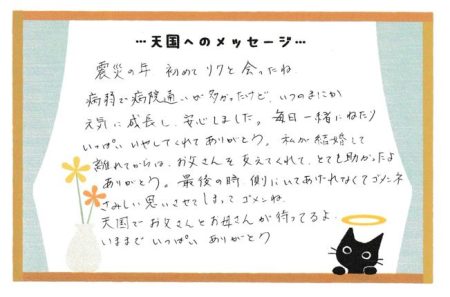 …天国へのメッセージ…
震災の年 初めてリクと会ったね
病弱で病院通いが多かったけど、いつのまにか
元気に成長し、安心しました。毎日一緒にねたり
いっぱいいやしてくれてありがとう。私が結婚して
離れてからは、お父さんを支えてくれて、とても助かったよ
ありがとう。最後の時、側にいてあげれなくてゴメンネ
さみしい思いさせてしまってゴメンね
天国でお父さんとお母さんが待ってるよ
いままで いっぱい ありがとう